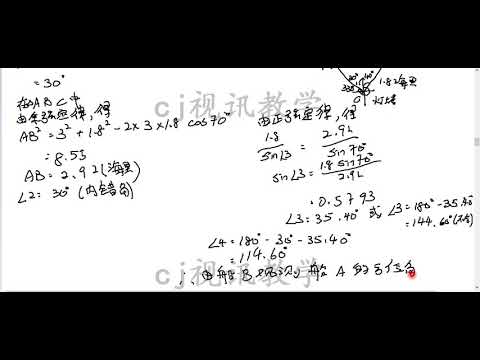 = 30°
在△ABC中
由余弦定律,得
AB² = 3² + 1.8² - 2 x 3 x 1.8 cos 70°
= 8.53
AB = 2.92 (海里)
∠2 = 30° (内错角)
由正弦定律,得
1.8/sin∠3 = 2.92/sin70°
sin∠3 = 1.8 sin70°/2.92
= 0.5793
∠3 = 35.40° 或 ∠3 = 180° - 35.40°
= 144.60° (不合)
∠4 = 180° - 30° - 35.40°
= 114.60°
∴ 由船B观测船A的方位角
1.8海里
灯塔
cj视讯教学
cj视讯教学